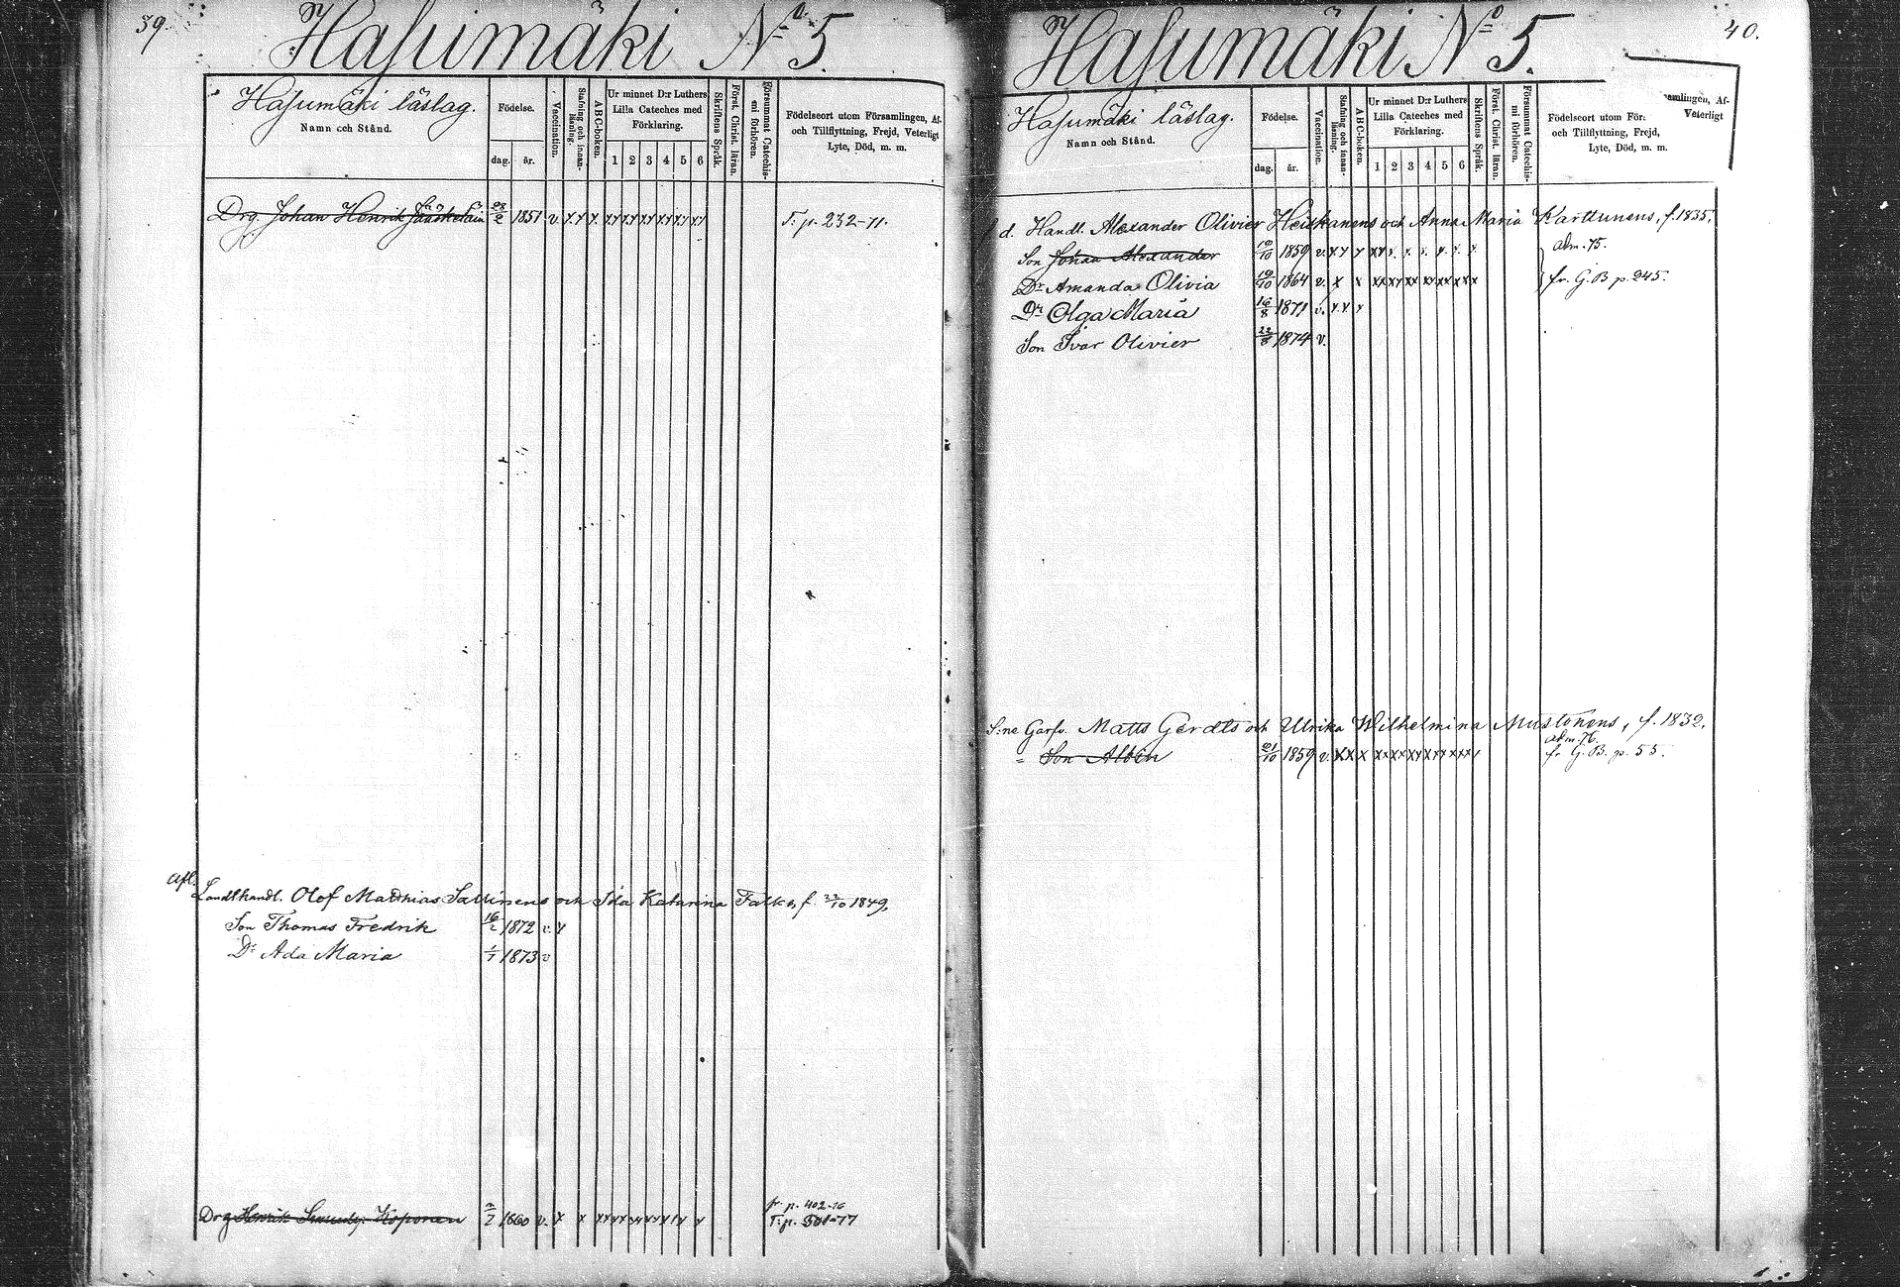 39.
Hasumäki No 5.
Hasumäki läslag.
Namn och Stånd.
Födelse.
dag. år.
Vaccination.
Stafning och innan-läsning.
ABC-boken.
Ur minnet D:r Luthers
Lilla Cateches med
Förklaring.
1 2 3 4 5 6
Skriftens Språk.
Först. Christ. läran.
Försummat Catechis-
mi förhören.
Födelseort utom Församlingen, Af-
och Tillflyttning, Frejd, Veterligt
Lyte, Död, m. m.
Drg. Johan Henrik Jääskeläin 23/2 1851 v. x x x xx xx xx xx xx xx T. p. 232-71.
afl. Landthandl. Olof Mathias Sallinens och Ida Katarina Falks, f. 22/10 1849.
Son Thomas Fredrik 16/2 1872 v. x
Dr Ada Maria 1/7 1873 v
fr. p. 402-76
Drg Henrik Koponen 2/7 1860 v. x x xx xx xx xx xx x T. p. 501-77
40.
Hasumäki No 5.
Hasumäki läslag.
Namn och Stånd.
Födelse.
dag. år.
Vaccination.
Stafning och innan-läsning.
ABC-boken.
Ur minnet D:r Luthers
Lilla Cateches med
Förklaring.
1 2 3 4 5 6
Skriftens Språk.
Först. Christ. läran.
Försummat Catechis-
mi förhören.
Födelseort utom För:
samlingen, Af-
och Tillflyttning, Frejd,
Veterligt
Lyte, Död, m. m.
f. d. Handl. Alexander Olivier Heiskanens och Anna Maria Karttunens, f. 1835.
Son Johan Alexander 10/10 1859 v. x x x xx x. x. x. x. x. x adm. 75.
Dr Amanda Olivia 19/10 1864 v. x x xx xx xx xx xx xx x fr. G. B p. 245.
Dr Olga Maria 16/8 1871 v. x x x
Son Ivar Olivier 22/8 1874 v.
S:ne Garfv. Matts Gerdts och Ulrika Wilhelmina Mustonens, f. 1832.
adm. 76.
" Son Albin 21/10 1859 v. x x x xx xx xx xx xx xx x fr. G. B. p. 55.